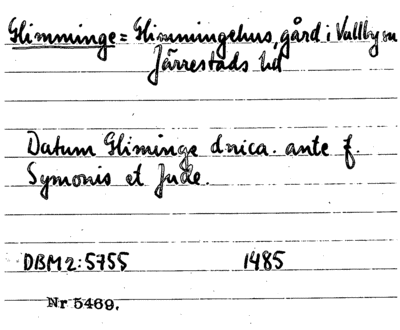 Glimminge = Glimmingehus, gård i Vallby sn
Järrestads hd
Datum Gliminge dnica. ante f.
Symonis et Jude.
DBM 2:5755 1485
Nr 5469.